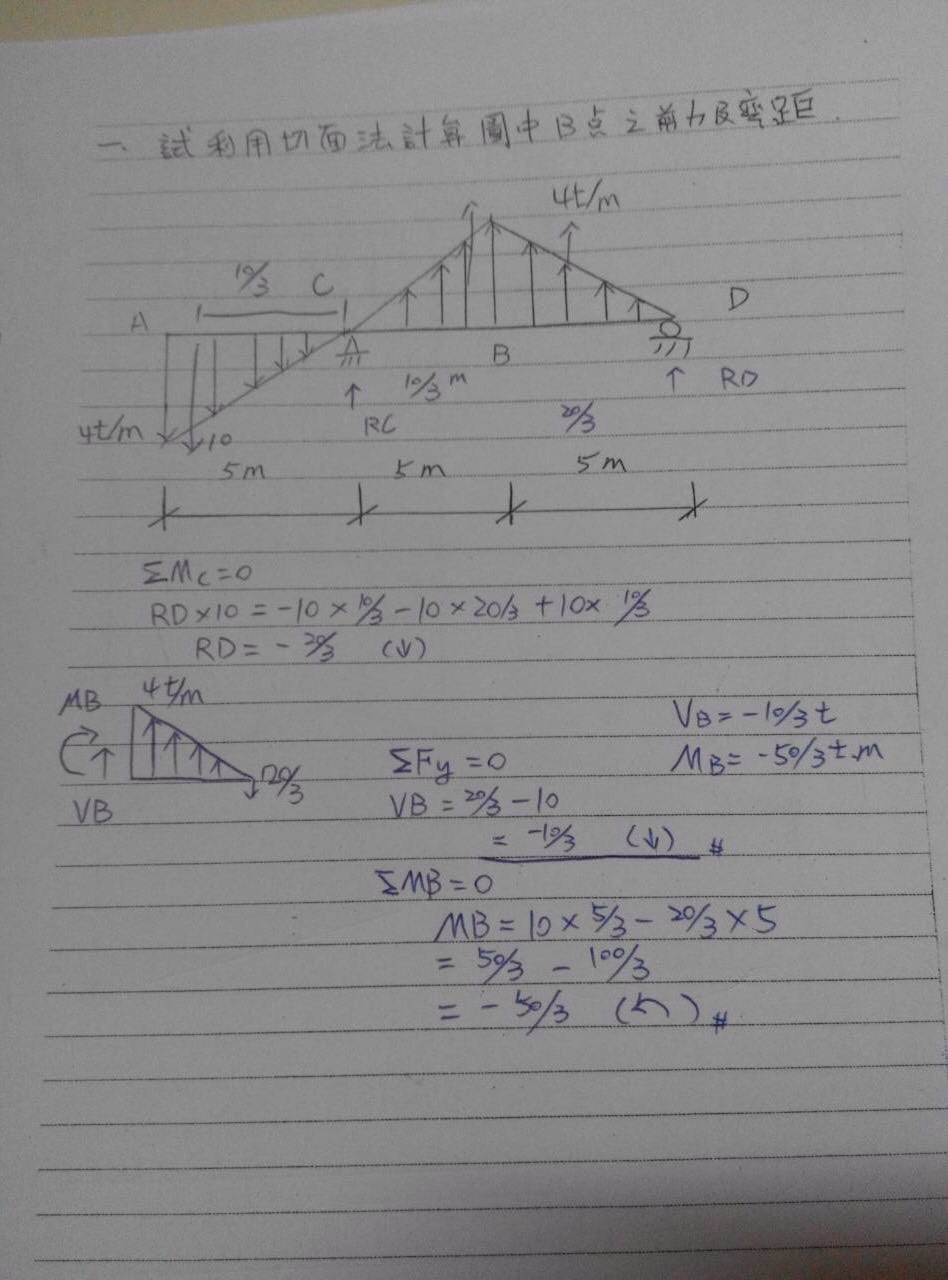 一、試利用切面法計算圖中B点之剪力及彎距.
4t/m
10/3 C
A D
B
10/3 m ↑ RD
↑ RC 20/3
4t/m 10
5m 5m 5m
ΣMc=0
RD×10 = -10×10/3 -10×20/3 +10× 10/3
RD= - 20/3 (↓)
MB 4t/m
VB= -10/3 t
ΣFy =0 MB= -50/3 t.m
20/3
VB VB = 20/3 -10
= -10/3 (↓) #
ΣMB=0
MB= 10× 5/3 - 20/3 ×5
= 50/3 - 100/3
= - 50/3 (↰) #